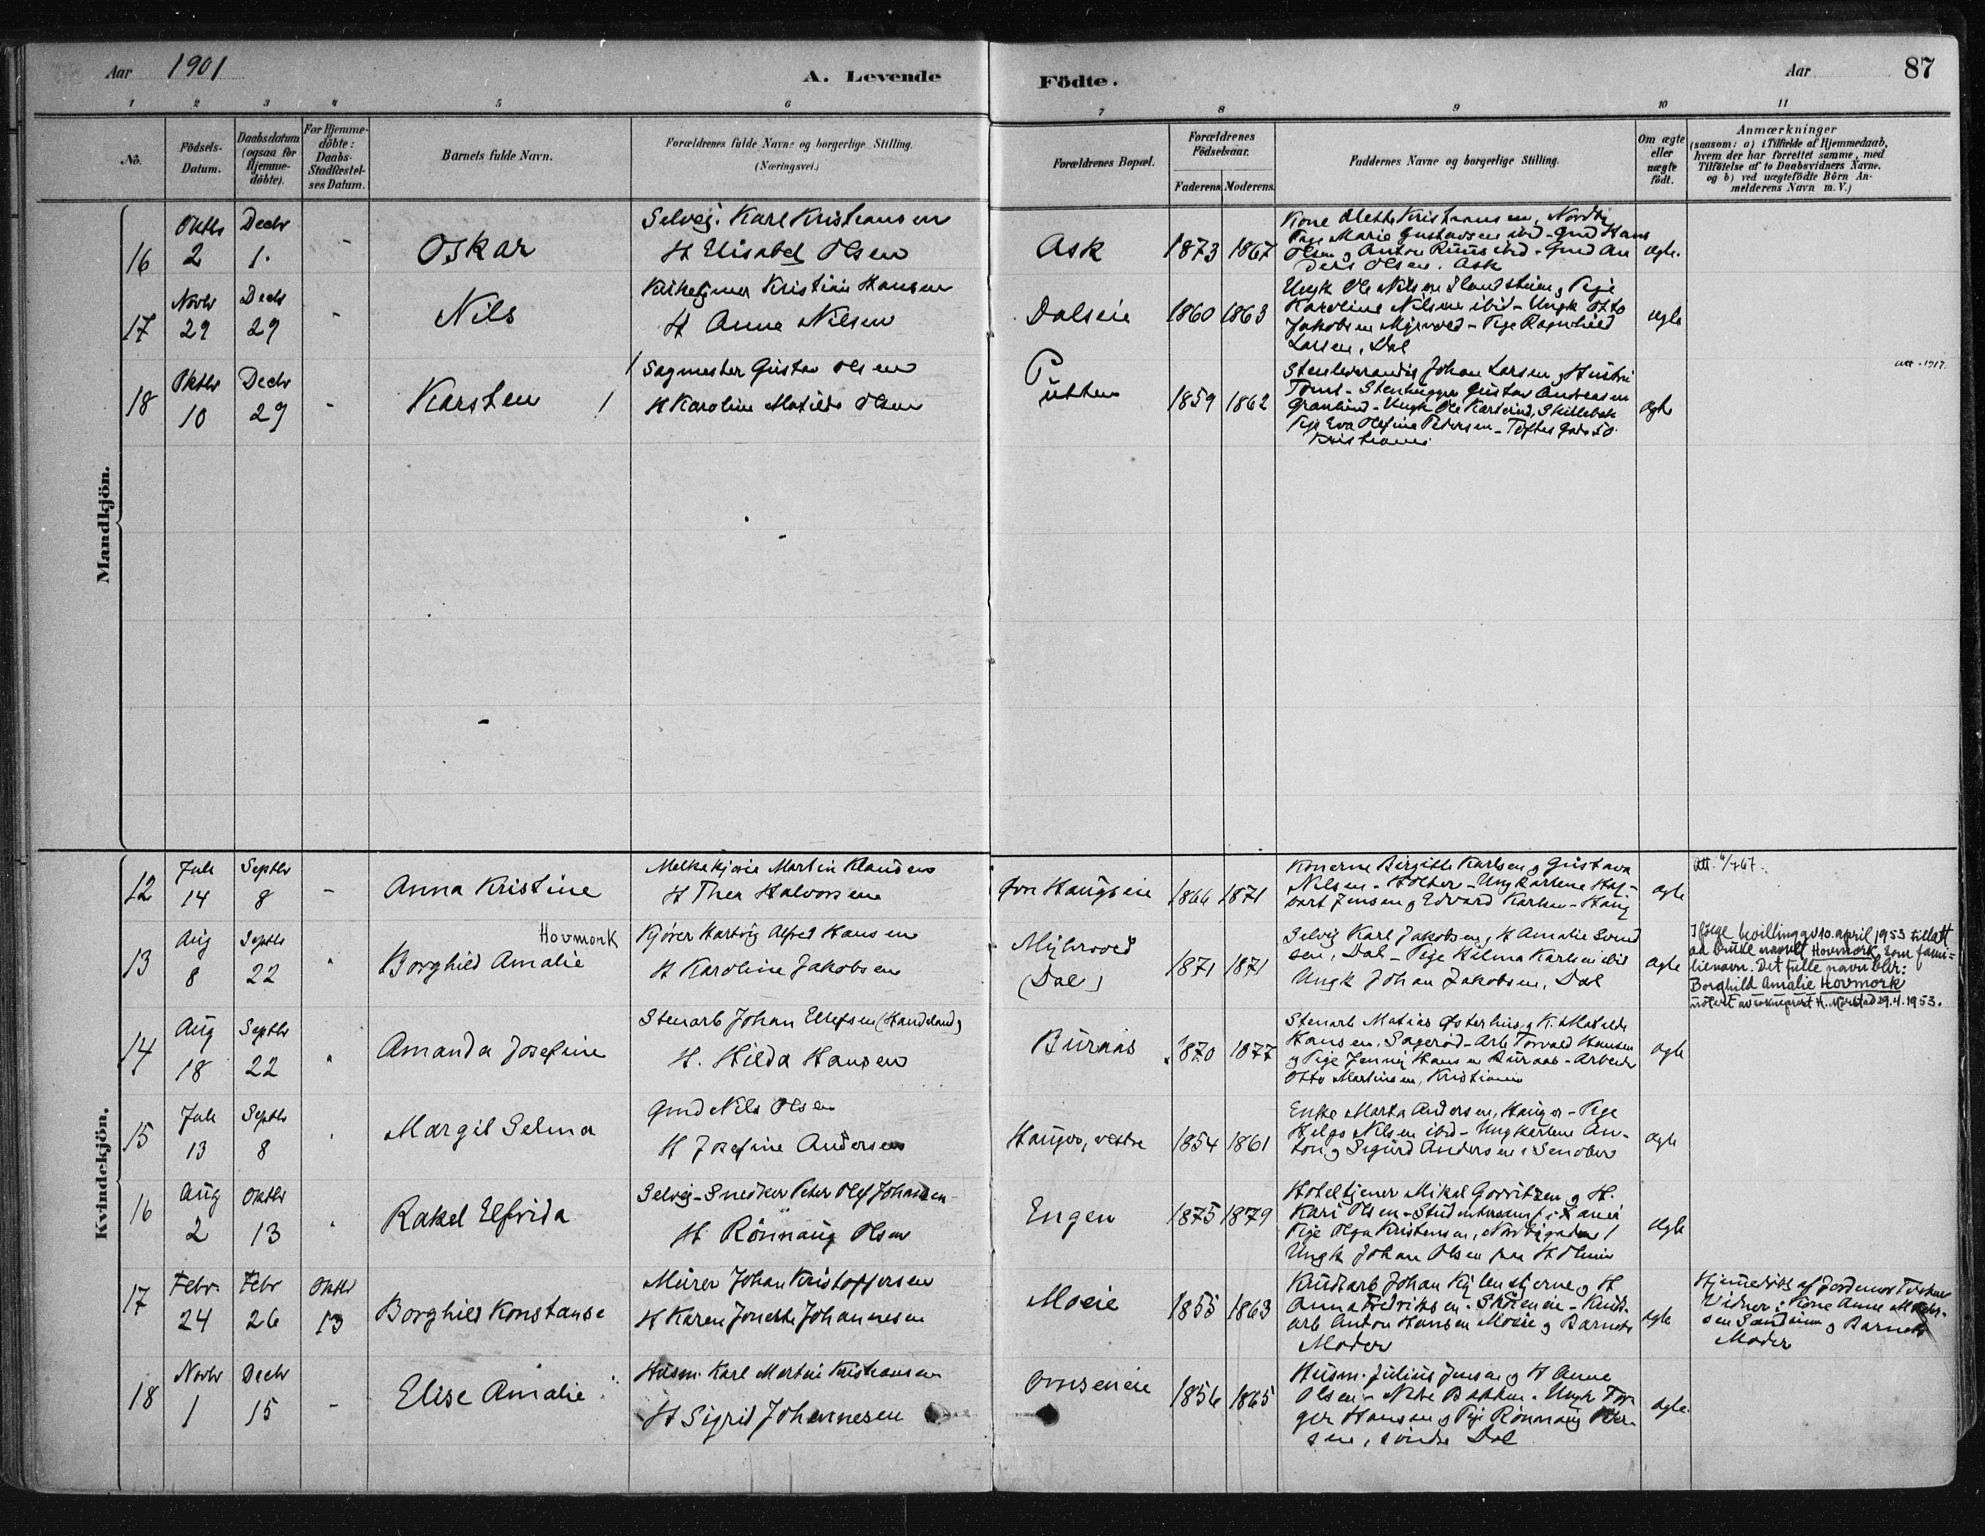 Aar 1901 A. Levende Födte. Aar 87
1 2 3 4 5 6 7 8 9 10 11
No. Födsels-Datum. Daabsdatum (ogsaa for Hjemmedöbte). For Hjemmedöbte: Daabs-Stadfæstelses Datum. Barnets fulde Navn. Forældrenes fulde Navne og borgerlige Stilling. (Næringsvei.) Forældrenes Bopæl. Forældrenes Födselsaar. Faderens. Moderens. Faddernes Navne og borgerlige Stilling. Om ægte eller uægte födt. Anmærkninger (saasom: a) i Tilfælde af Hjemmedaab, hvem der har forrettet samme, med Tilföielse af to Daabsvidners Navne. og b) ved uægtefödte Börn Anmelderens Navn m. V.)
Mandkjön.
16 Oktbr 2 Decbr 1. - Oskar Selvej. Karl Kristiansen
H Elisabet Olsen Ask 1873 1867 Kone Mette Kristiansen, Nordby
Pige Marie Gustavsen ibid - Gmd Hans
Olsen, Anton Ruus ibid - Gmd An
ders Olsen. Ask ægte.
17 Novbr 29 Decbr 29 - Nils Kristian Hansen
H Anne Nilsen Dalseie 1860 1863 Ungk Ole Nilsen Pige
Karoline Nilsen ibid - Ungk Otto
Jakobsen Myrvold - Pige Ragnhild
Larsen, Dal ægte
18 Oktbr 10 Decbr 29 - Karsten Sagmester Gustav Olsen
H Karoline Matilde Olsen Putten 1859 1862 Stenleverandör Johan Larsen, Hustru
Tomt - Stenhugger Gustav Andreasen
Granlund - Ungk Ole Skillebek
Pige Eva Olefine Pedersen - Toftes Gade 50
Kristiania ægte att. 1917.
Kvindekjön.
12 Juli 14 Septbr 8 - Anna Kristine Melkekjører Martin Klausen
H Thea Halvorsen Haugseie 1866 1871 Konerne Birgitte Karlsen og Gustava
Nilsen - Holter - Ungkarlene
Jensen og Edvard Karlsen - Haug ægte
13 Aug 8 Septbr 22 " Borghild Amalie Hovmork Kjører Hartvig Alfred Hansen
H Karoline Jakobsen Myhrvold
(Dal) 1871 1871 Selvej Karl Jakobsen, H Amalie Svend
sen, Dal - Pige Hilma Karlsen ibid
Ungk Johan Jakobsen, Dal ægte Ifölge bevilling av 10. april 1953 tillatt
aa bruke navnet Hovmork som fami-
lienavn. Det fulle navn blir:
Borghild Amalie Hovmork
29.4.1953.
14 Aug 18 Septbr 22 " Amanda Josefine Stenarb Johan Ellefsen (Handeland)
H. Hilda Hansen Buraas 1870 1877 Stenarb Matias Østerhus, K. Matilde
Hansen, Sagerød - Arb Torvald Hansen
og Pige Jenny Hansen Buraas - Arbeider
Otto Martinsen, Kristiania ægte
15 Juli 13 Septbr 8 Margit Selma Gmd Nils Olsen
H Josefine Andersen Hauger, vestre 1854 1861 Enke Marta Andersen, Hauger - Pige
Helga Nilsen ibid - Ungkarlene An-
ton og Sigurd Andersen i Senober ægte
16 Aug 2 Oktbr 13 " Rakel Elfrida Selvej - Snedker Peter Olaf Johansen
H Rönnaug Olsen Engen 1875 1879 Hoteltjener Mikal Gorvitzen og H.
Kari Olsen
Pige Olga Kristensen, Nordbygaden 1
Ungk Johan Olsen fra Holmen ægte
17 Febr. 24 Febr 26 Oktbr 13 Borghild Konstanse Murer Johan Kristoffersen
H Karen Jonette Johannesen Moeie 1855 1863 Krudtarb Johan Kylenstjerne og H
Anna Fredriksen - Skoieneie - Krudt-
arb Anton Hansen Moeie og Barnets
Moder ægte Hjemmedöbt af Jordemor
Vidner: Kone Anne
og Barnets
Moder
18 Novbr 1 Decbr 15 - Elise Amalie Husm. Karl Martin Kristiansen
H Sigrid Johannesen Ornseneie 1856 1865 Husm. Julius Jensen og H Anne
Olsen - Nebe - Ungk Tor-
ger Hansen og Pige Rönnaug
sen, söndre Dal ægte.